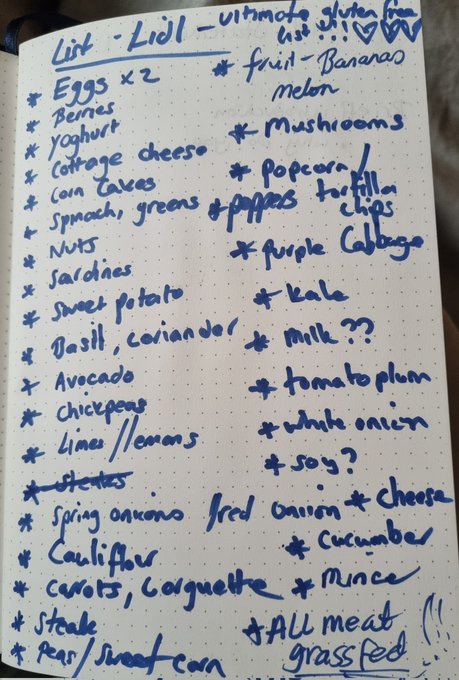 List - Lidl - ultimate gluten free
list !!! ♡♡♡
* Eggs x 2
* Berries
* Yoghurt
* Cottage cheese
* Corn Cakes
* Spinach, greens
* Nuts
* Sardines
* Sweet potato
* Basil, coriander
* Avocado
* Chickpeas
* Limes // lemons
* Steaks
* Spring onions / red onion
* Cauliflour
* Carrots, Corguette
* Steak
* Peas / Sweet corn
* fruit - Bananas
melon
* Mushrooms
* Popcorn /
tortilla
chips
* peppers
* Purple Cabbage
* Kale
* Milk ??
* tomato plum
* white onion
* soy?
* cheese
* Cucumber
* Mince
* ALL meat
grassfed !!!